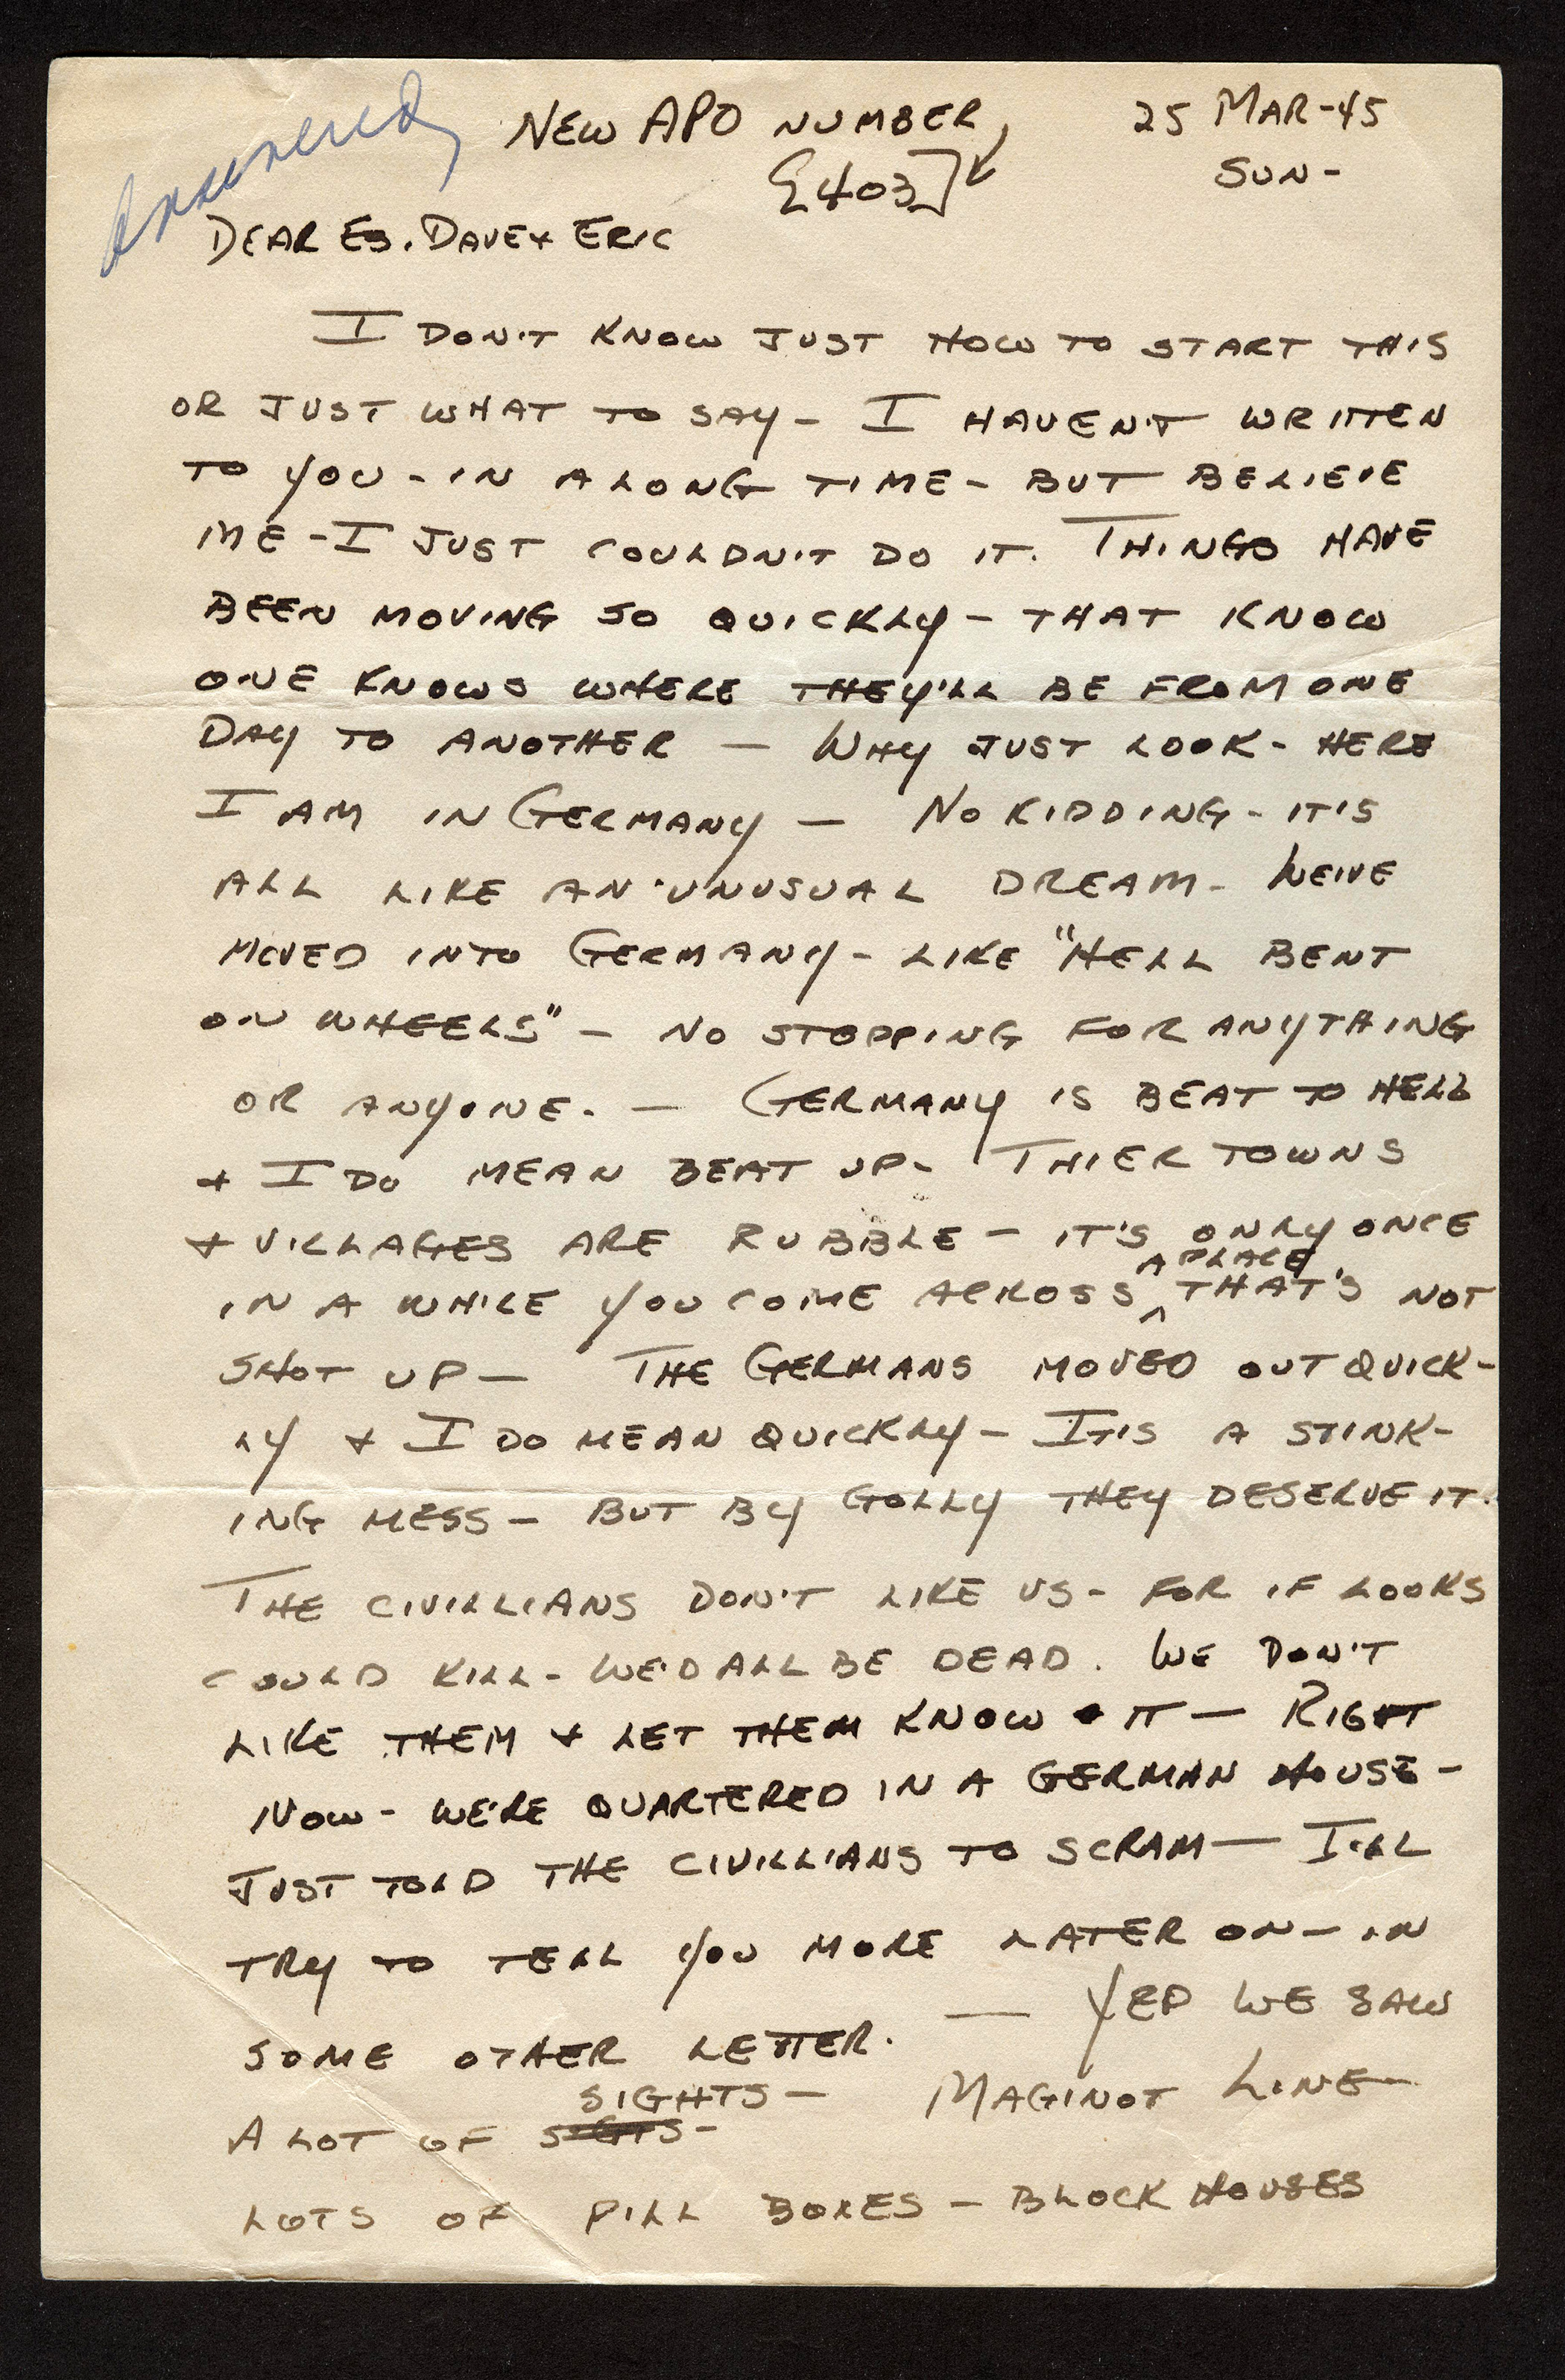 Answered
NEW APO NUMBER
[403]
25 MAR-45
SUN-
DEAR EB. DAVE & ERIC
I DON'T KNOW JUST HOW TO START THIS
OR JUST WHAT TO SAY - I HAVEN'T WRITTEN
TO YOU - IN A LONG TIME - BUT BELIEVE
ME - I JUST COULDN'T DO IT. THINGS HAVE
BEEN MOVING SO QUICKLY - THAT KNOW
ONE KNOWS WHERE THEY'LL BE FROM ONE
DAY TO ANOTHER — WHY JUST LOOK - HERE
I AM IN GERMANY — NO KIDDING - IT'S
ALL LIKE AN UNUSUAL DREAM - WE'VE
MOVED INTO GERMANY - LIKE "HELL BENT
ON WHEELS" — NO STOPPING FOR ANYTHING
OR ANYONE. — GERMANY IS BEAT TO HELL
& I DO MEAN BEAT UP - THIER TOWNS
& VILLAGES ARE RUBBLE — IT'S ONLY ONCE
IN A WHILE YOU COME ACROSS A PLACE THAT'S NOT
SHOT UP — THE GERMANS MOVED OUT QUICK-
LY & I DO MEAN QUICKLY — IT'S A STINK-
ING MESS — BUT BY GOLLY THEY DESERVE IT.
THE CIVILLIANS DON'T LIKE US - FOR IF LOOKS
COULD KILL - WE'D ALL BE DEAD. WE DON'T
LIKE THEM & LET THEM KNOW IT — RIGHT
NOW - WE'RE QUARTERED IN A GERMAN HOUSE -
JUST TOLD THE CIVILLIANS TO SCRAM — I'LL
TRY TO TELL YOU MORE LATER ON — IN
SOME OTHER LETTER. — YEP WE SAW
A LOT OF SIGHTS — MAGINOT LINE —
LOTS OF PILL BOXES — BLOCK HOUSES